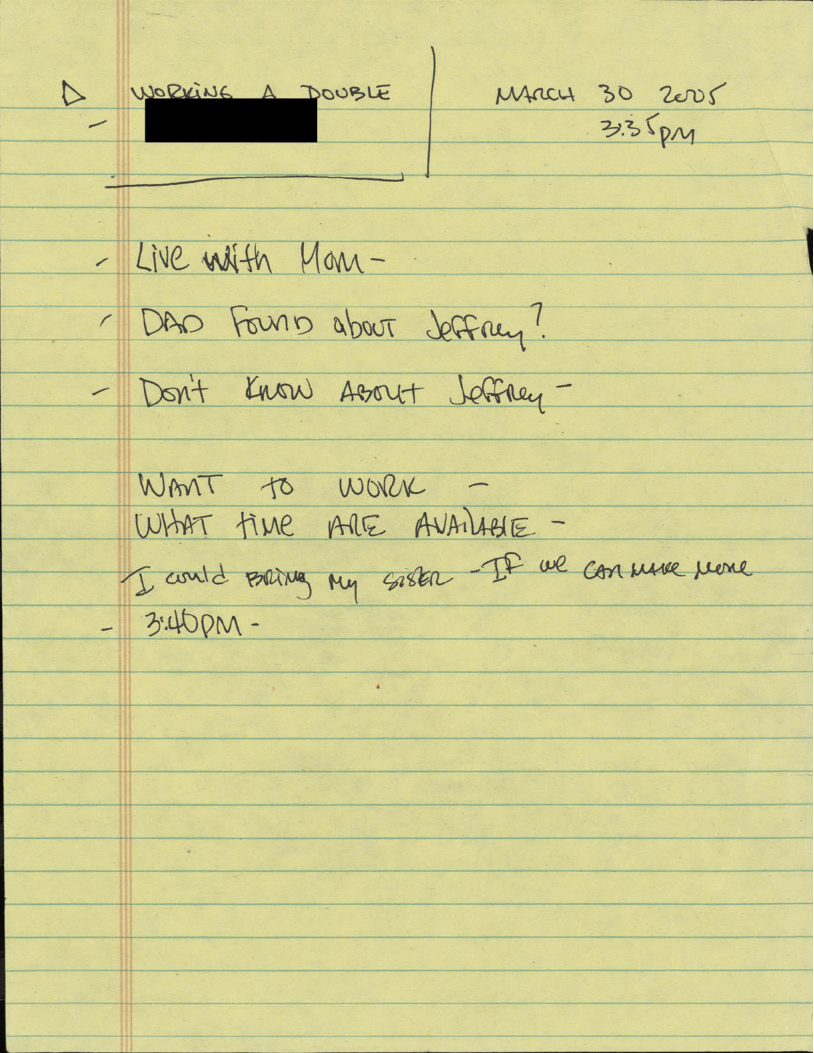 ▷ WORKING A DOUBLE
MARCH 30 2005
3:35pm
- Live with Mom -
- DAD FOUND about Jeffrey?
- Don't KNOW ABOUT Jeffrey -
WANT to WORK -
WHAT time ARE AVAILABLE -
I could BRING My SISTER - IF we CAN MAKE MORE
- 3:40PM -